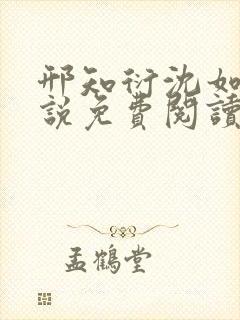 邢知衍沈如
說免費閱讀
孟鶴堂